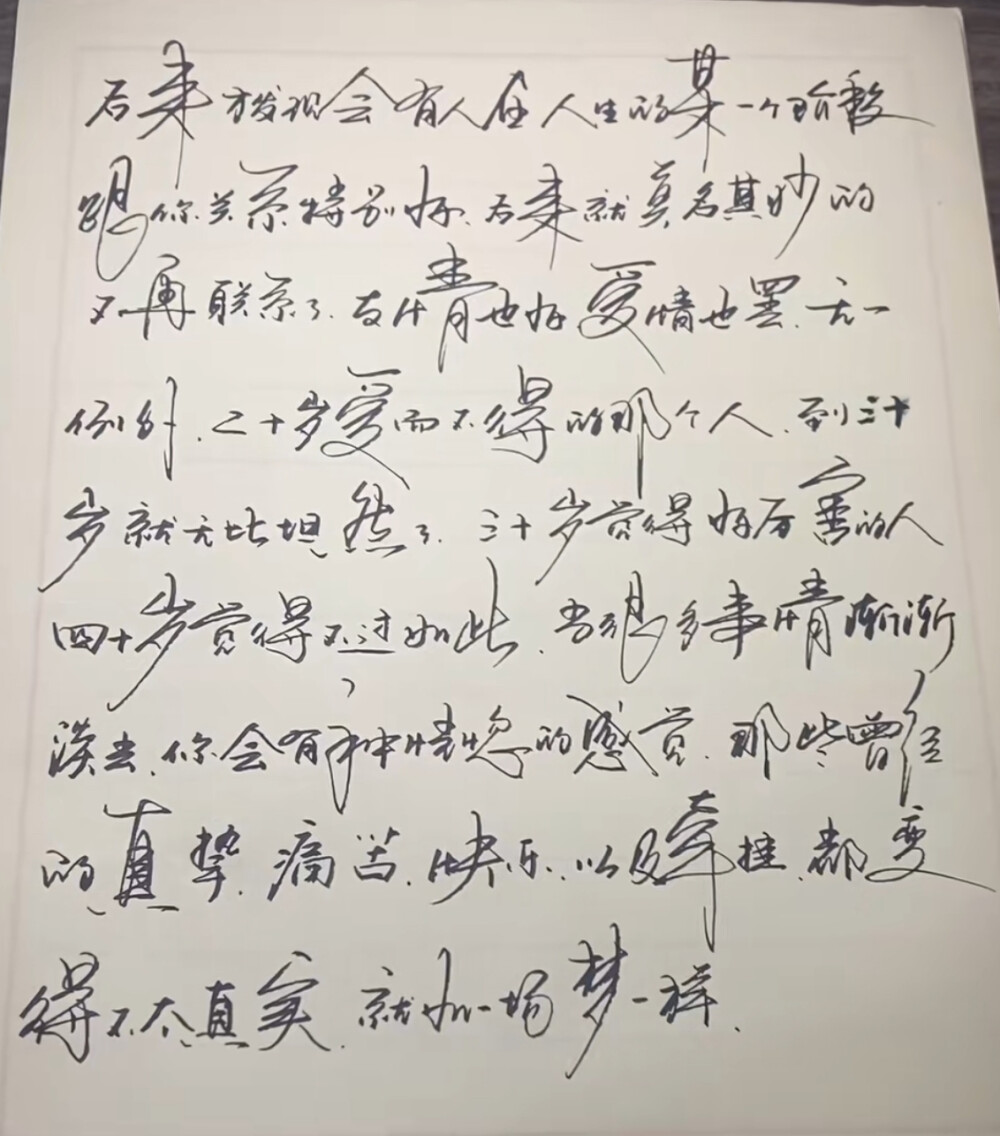 后来才发现会有人在人生的某一个阶段
跟你关系特别好、后来就莫名其妙的
不再联系了、友情也好、爱情也罢、无一
例外、二十岁爱而不得的那个人、到三十
岁就无比坦然了、三十岁觉得好厉害的人
四十岁觉得不过如此、当很多事情渐渐
淡去、你会有种恍惚的感觉、那些曾经
的真挚、痛苦、快乐、以及牵挂、都变
得不太真实、就如一场梦一样、